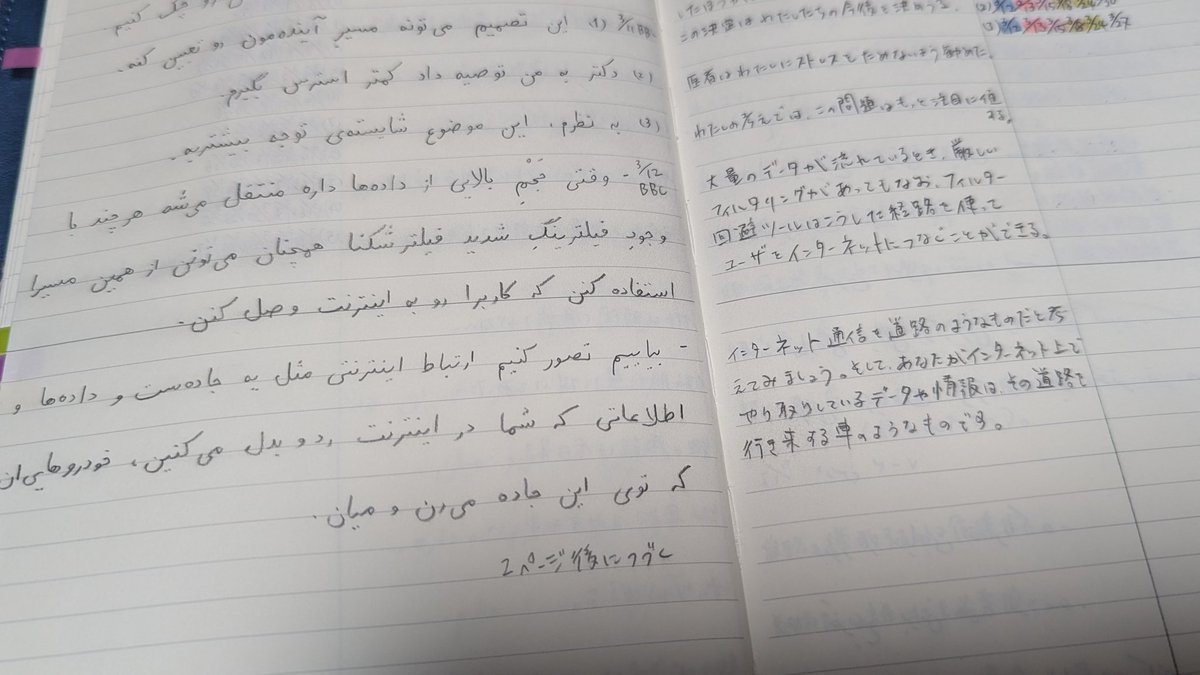 رو چک کنیم
(1) 3/11 BBC این تصمیم می‌تونه مسیر آینده‌مون رو تعیین کنه.
(2) دکتر به من توصیه داد کمتر استرس بگیرم.
(3) به نظرم، این موضوع شایسته‌ی توجه بیشتریه.
3/12 BBC - وقتی حجم بالایی از داده‌ها داره منتقل می‌شه هر چند با
وجود فیلترینگ شدید فیلترشکنا همچنان می‌تونن از همین مسیرا
استفاده کنن که کاربرا رو به اینترنت وصل کنن.
- بیاییم تصور کنیم ارتباط اینترنتی مثل یه جاده‌ست و داده‌ها و
اطلاعاتی که شما در اینترنت رد و بدل می‌کنین، خودروهایی‌ان
که توی این جاده می‌رن و میان.
2ページ後につづく
この決定はわたしたちの今後を決めうる。
医者はわたしにストレスをためないよう勧めた。
わたしの考えでは、この問題はもっと注目に値
する。
大量のデータが流れているとき、厳しい
フィルタリングがあってもなお、フィルター
回避ツールはこうした経路を使って
ユーザをインターネットにつなぐことができる。
インターネット通信を道路のようなものだと考
えてみましょう。そして、あなたがインターネット上で
やり取りしているデータや情報は、その道路を
行き来する車のようなものです。